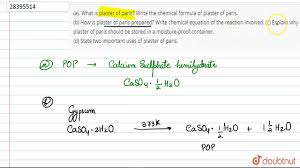 28395514
(a). What is plaster of paris? Write the chemical formula of plaster of paris.
(b) How is plaster of paris prepared? Write chemical equation of the reaction involved. (c) Explain why
plaster of paris should be stored in a moisture-proof container.
(d) State two important uses of plaster of paris.
(a) POP → Calcium Sulphate hemihydrate
CaSO4·½H2O
Gypsum
CaSO4·2H2O 373K → CaSO4·½H2O + 1½H2O
POP
doubtnut